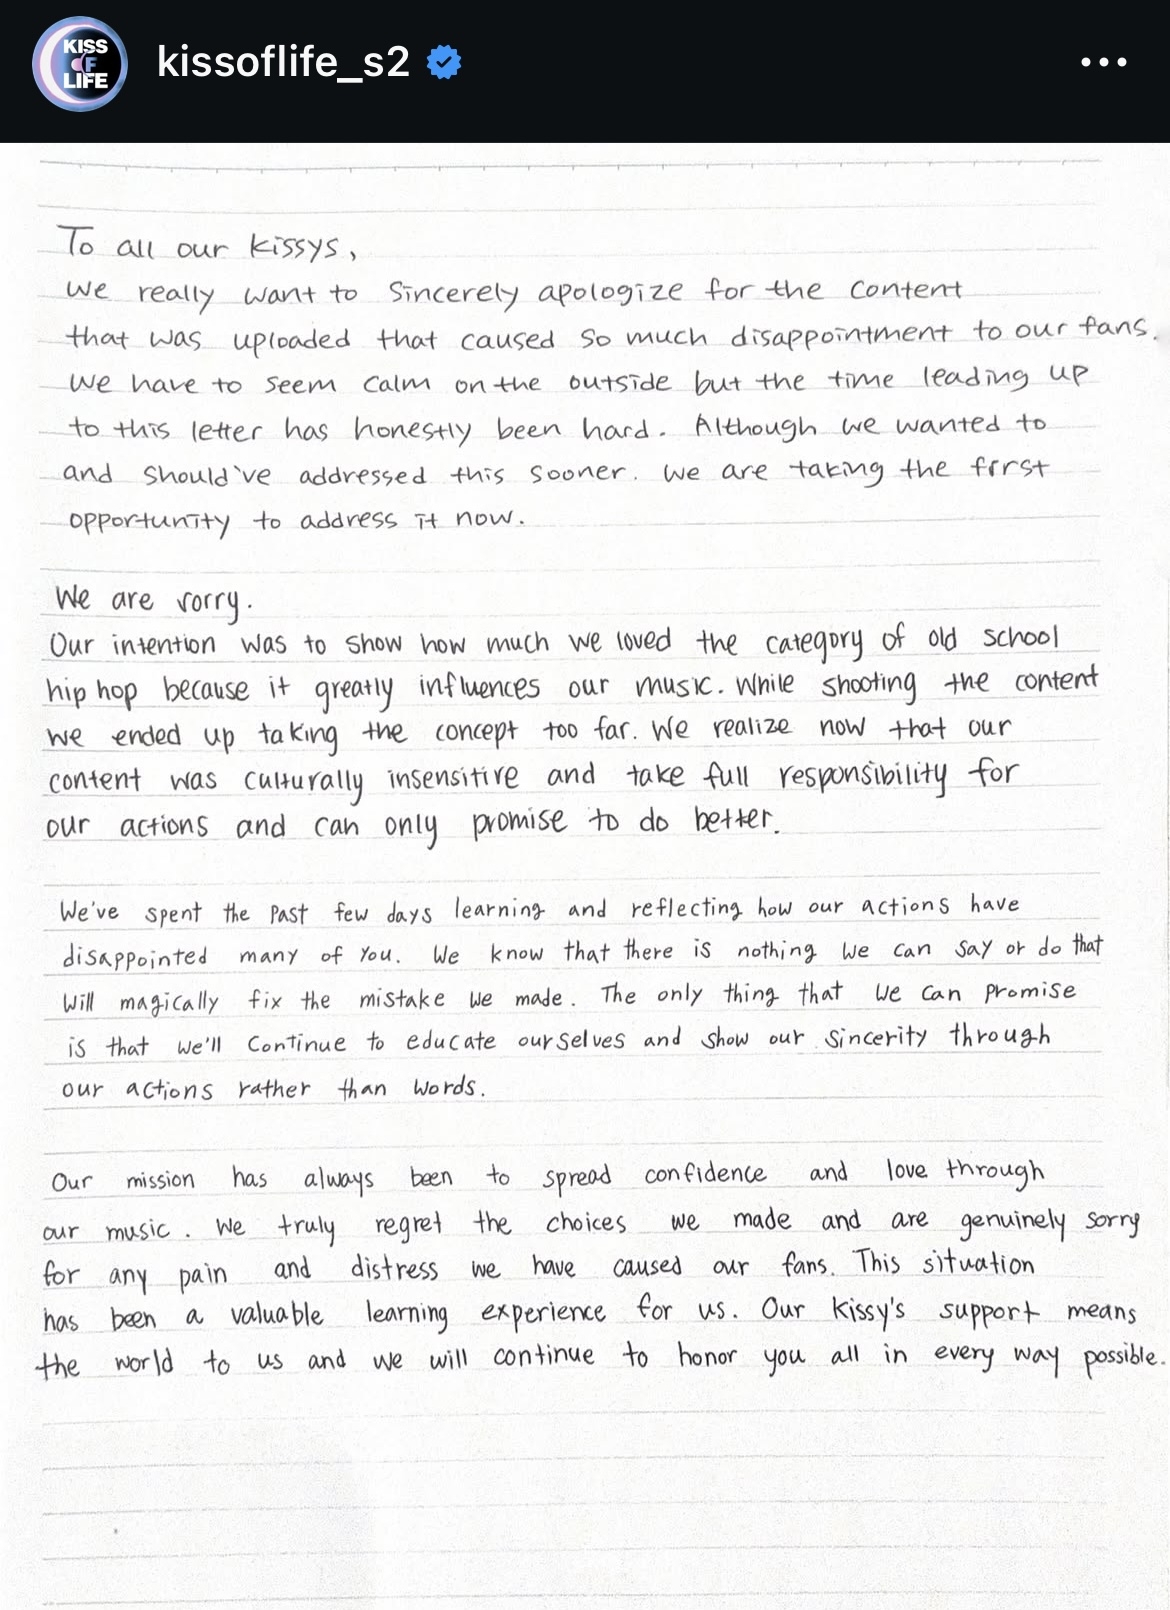 KISS
OF
LIFE
kissoflife_s2
To all our kissys,
We really want to sincerely apologize for the content
that was uploaded that caused so much disappointment to our fans.
We have to seem calm on the outside but the time leading up
to this letter has honestly been hard. Although we wanted to
and should've addressed this sooner. We are taking the first
opportunity to address it now.
We are sorry.
Our intention was to show how much we loved the category of old school
hip hop because it greatly influences our music. While shooting the content
we ended up taking the concept too far. We realize now that our
content was culturally insensitive and take full responsibility for
our actions and can only promise to do better.
We've spent the past few days learning and reflecting how our actions have
disappointed many of you. We know that there is nothing we can say or do that
will magically fix the mistake we made. The only thing that we can promise
is that we'll continue to educate ourselves and show our sincerity through
our actions rather than words.
Our mission has always been to spread confidence and love through
our music. We truly regret the choices we made and are genuinely sorry
for any pain and distress we have caused our fans. This situation
has been a valuable learning experience for us. Our kissy's support means
the world to us and we will continue to honor you all in every way possible.